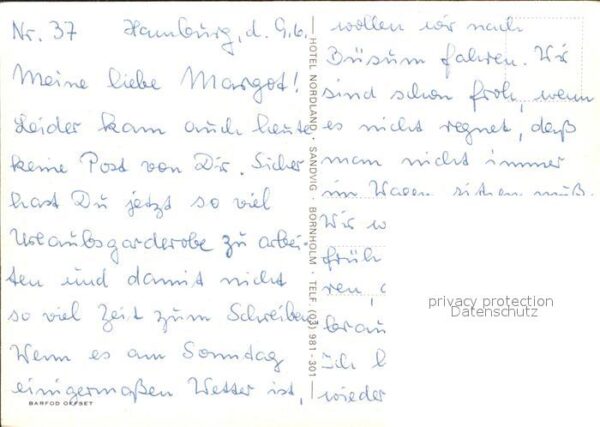 Nr. 37 Hamburg, d. 9.6.
Meine liebe Margot!
Leider kam auch heute
keine Post von Dir. Sicher
hast Du jetzt so viel
Urlaubsgarderobe zu arbei-
ten und damit nicht
so viel Zeit zum Schreiben
Wenn es am Sonntag
einigermaßen Wetter ist,
BARFOD OFFSET
HOTEL NORDLAND · SANDVIG · BORNHOLM · TELF. (03) 981-301
wollen wir nach
Büsum fahren. Wir
sind schon froh, wenn
es nicht regnet, daß
man nicht immer
im Wagen sitzen muß.
Wir w
früh
ren,
brau
ich
wieder
privacy protection
Datenschutz